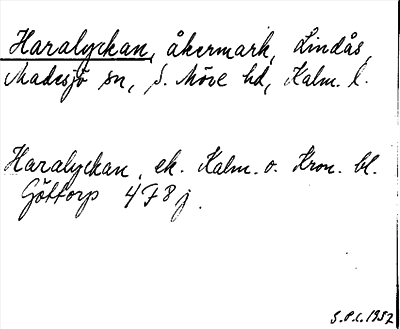 Haralyckan, åkermark, Lindås,
Madesjö sn, S. Möre hd, Kalm. l.
Haralyckan, ek. Kalm. o. Kron. bl.
Göttorp 4 F 8 j.
S.P.L. 1952